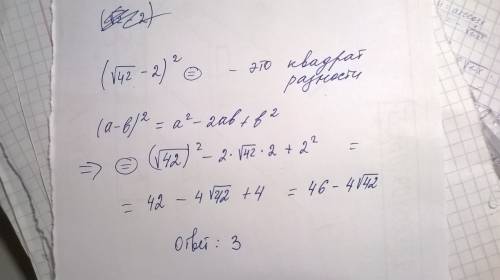 (√42 - 2)² = - это квадрат разности
(a-b)² = a² - 2ab + b²
=> = (√42)² - 2·√42·2 + 2² =
= 42 - 4√42 + 4 = 46 - 4√42
Ответ: 3